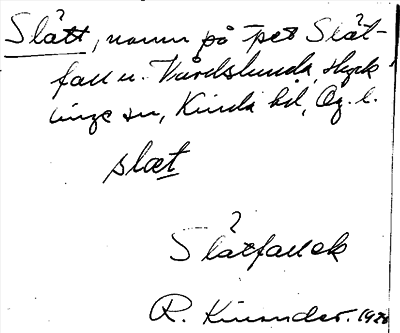 Slått, namn på tpt Slåt-
fall u. Vårdslunda, Hyck
linge sn, Kinda hd, Ög. l.
slæt
Slåtfallek
R. Kinander. 192